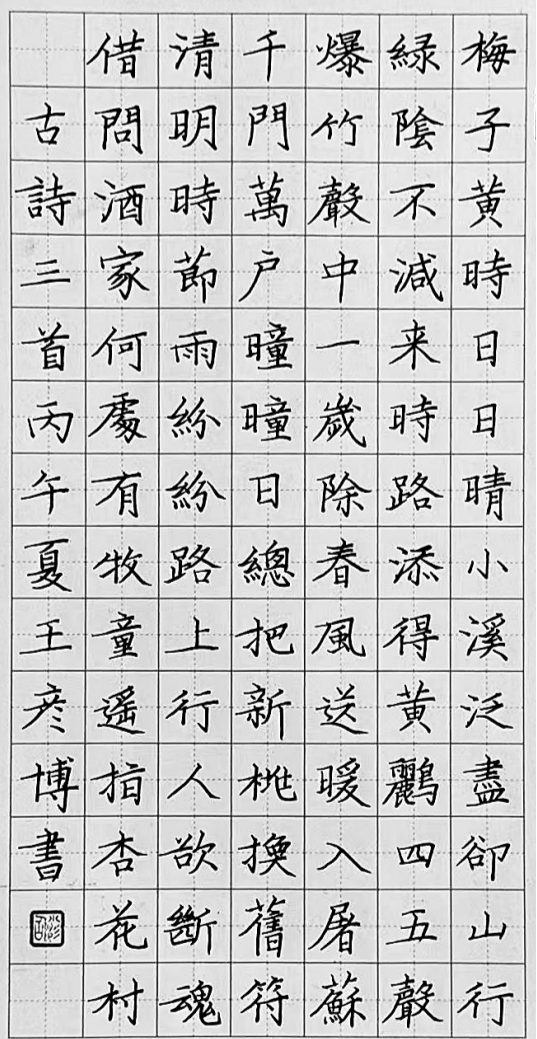 梅子黃時日日晴小溪泛盡卻山行
綠陰不減来時路添得黃鸝四五聲
爆竹聲中一歲除春風送暖入屠蘇
千門萬户曈曈日總把新桃換舊符
清明時節雨紛紛路上行人欲斷魂
借問酒家何處有牧童遥指杏花村
古詩三首丙午夏王彥博書